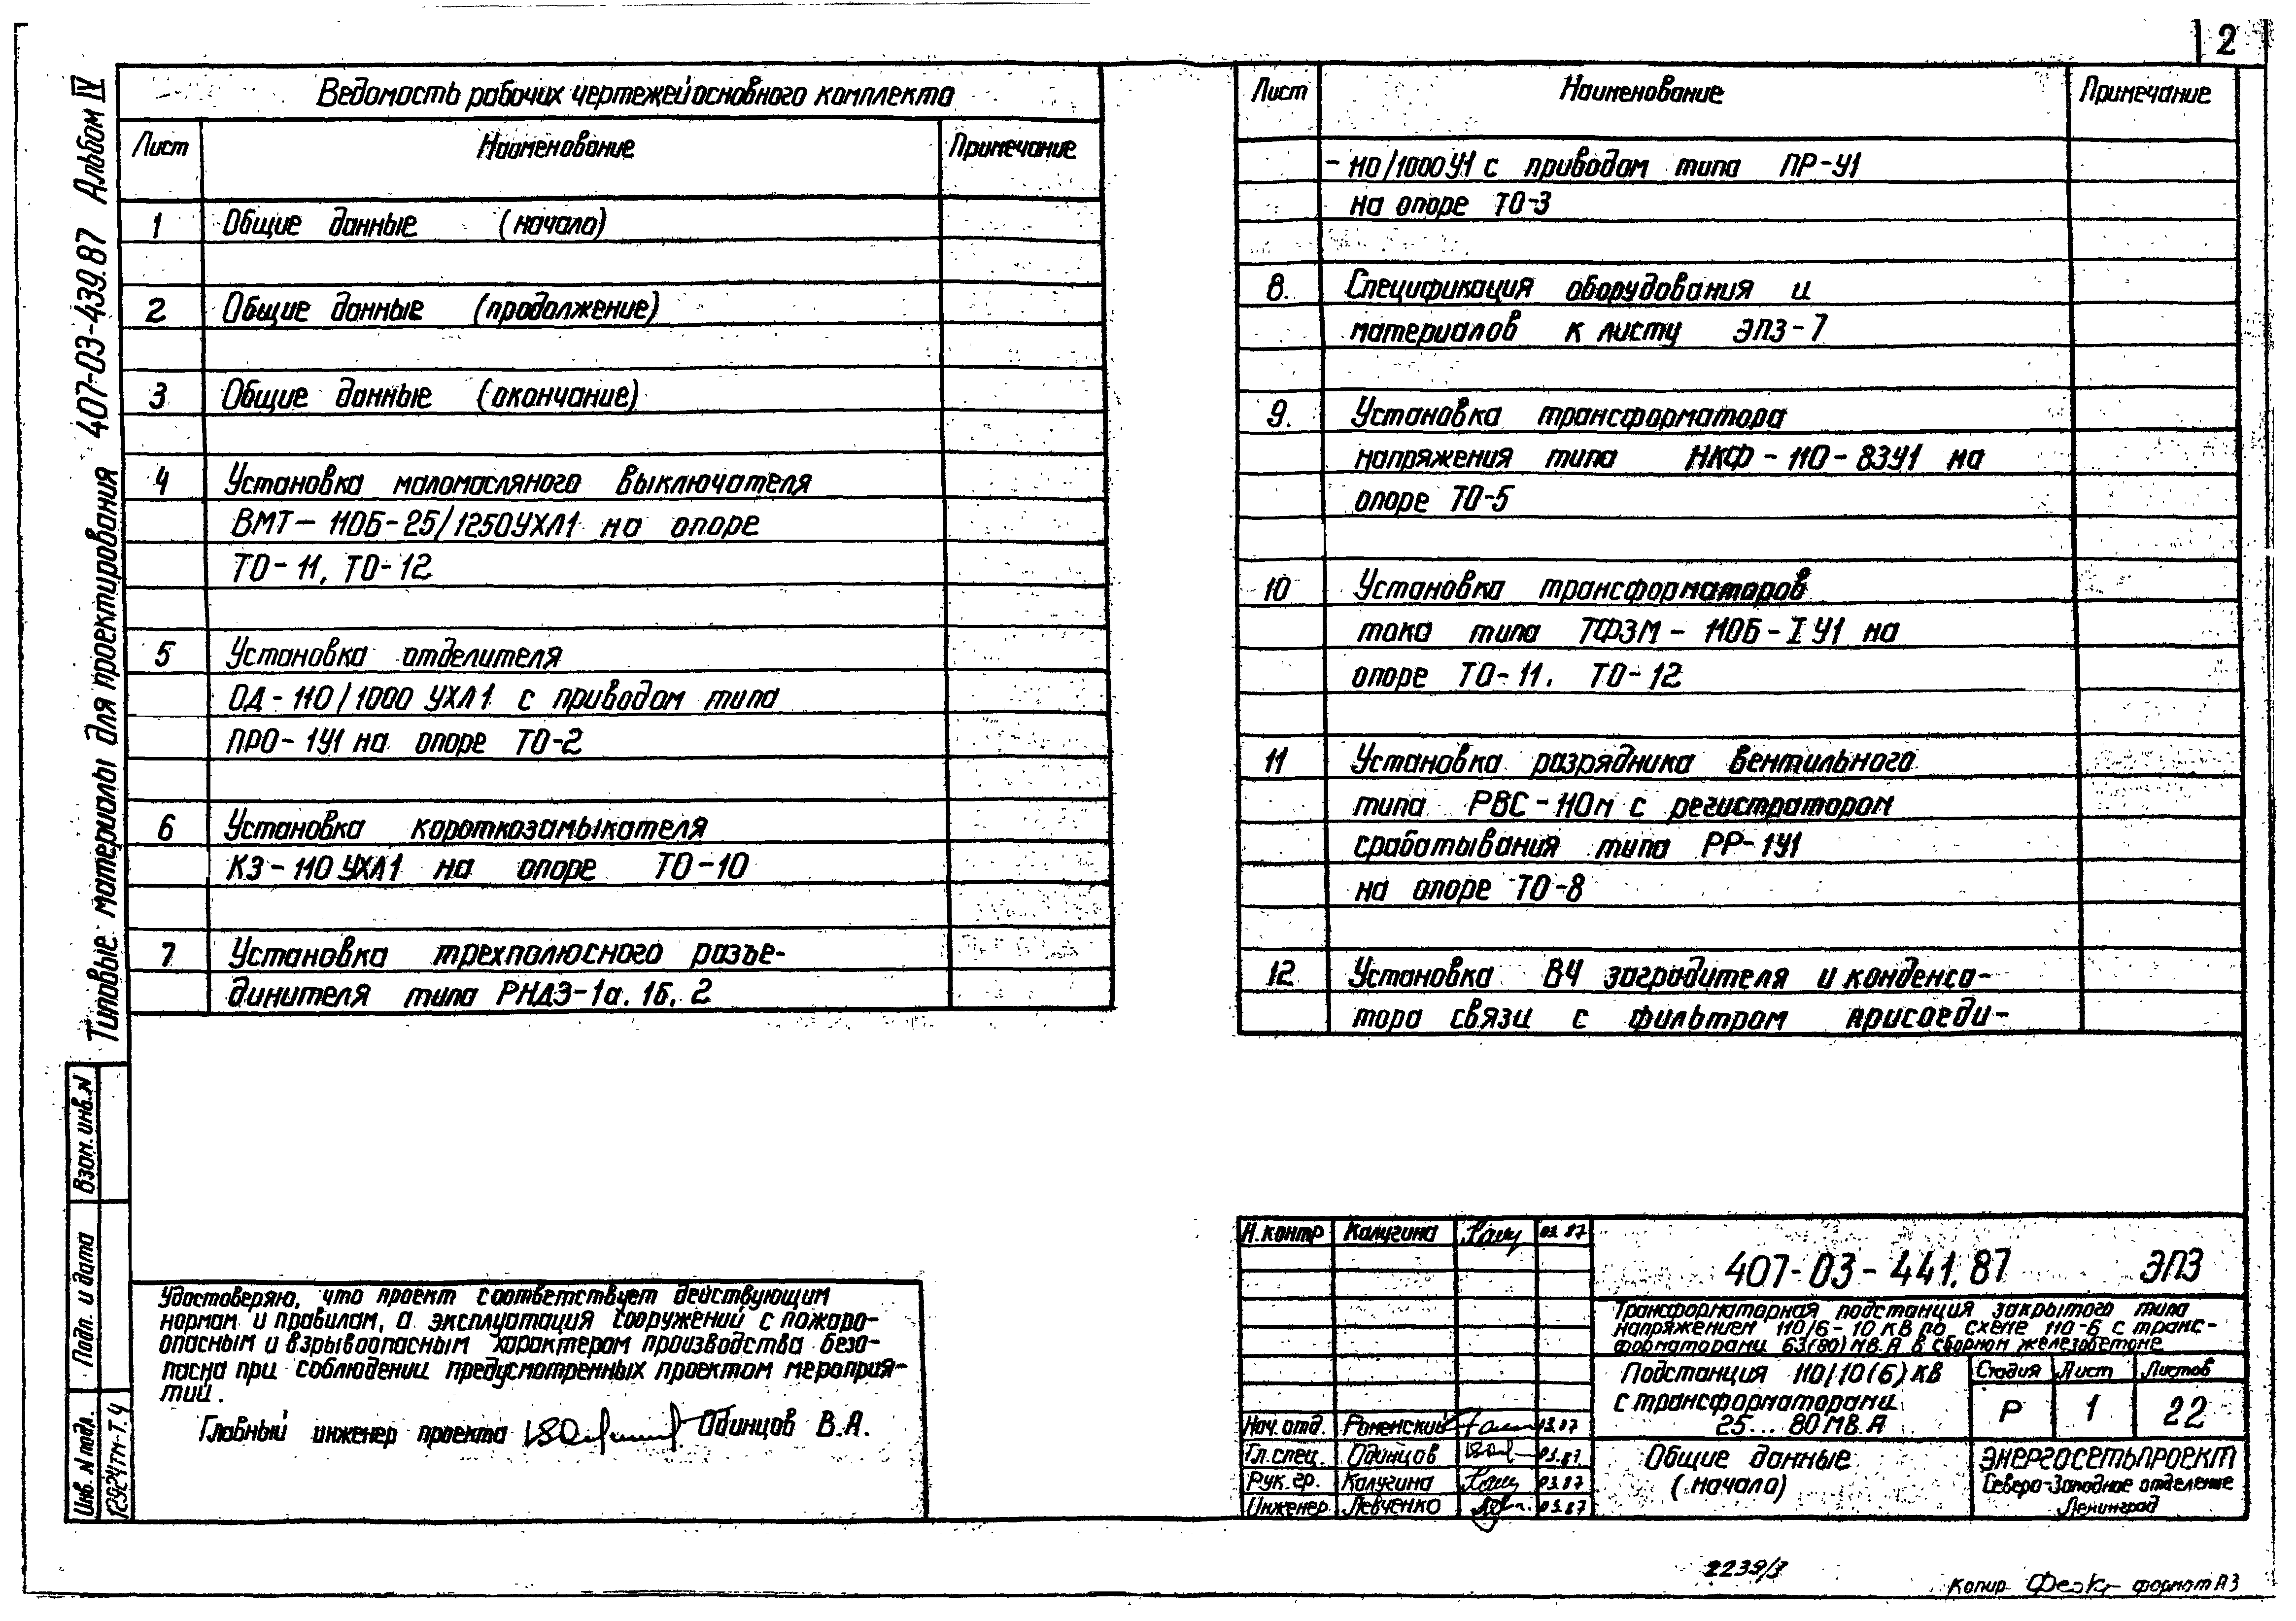 2
Типовые материалы для проектирования 407-03-439.87 Альбом IV
Ведомость рабочих чертежей основного комплекта
Лист Наименование Примечание
1 Общие данные (начало)
2 Общие данные (продолжение)
3 Общие данные (окончание)
4 Установка маломасляного выключателя
ВМТ-110Б-25/1250УХЛ1 на опоре
ТО-11, ТО-12
5 Установка отделителя
ОД-110/1000 УХЛ1 с приводом типа
ПРО-1У1 на опоре ТО-2
6 Установка короткозамыкателя
КЗ-110 УХЛ1 на опоре ТО-10
7 Установка трехполюсного разъе-
динителя типа РНДЗ-1а, 1б, 2
Лист Наименование Примечание
-110/1000У1 с приводом типа ПР-У1
на опоре ТО-3
8. Спецификация оборудования и
материалов к листу ЭПЗ-7
9. Установка трансформатора
напряжения типа НКФ-110-83У1 на
опоре ТО-5
10 Установка трансформаторов
тока типа ТФЗМ-110Б-I У1 на
опоре ТО-11. ТО-12
11 Установка разрядника вентильного
типа РВС-110м с регистратором
срабатывания типа РР-1У1
на опоре ТО-8
12 Установка ВЧ заградителя и конденса-
тора связи с фильтром присоеди-
Взам. инв. N
Подп. и дата
Инв. N подл.
12924тм-Т.4
Удостоверяю, что проект соответствует действующим
нормам и правилам, а эксплуатация сооружений с пожаро-
опасным и взрывоопасным характером производства безо-
пасна при соблюдении предусмотренных проектом мероприя-
тий.
Главный инженер проекта Одинцов В.А.
Н.контр Калугина 03.87
Нач.отд. Роменский 03.87
Гл.спец. Одинцов 03.87
Рук.гр. Калугина 03.87
Инженер Левченко 03.87
407-03-441.87 ЭПЗ
Трансформаторная подстанция закрытого типа
напряжением 110/6-10 кВ по схеме 110-6 с транс-
форматорами 63(80) МВ.А в сборном железобетоне
Подстанция 110/10(6) кВ
с трансформаторами
25...80 МВ.А
Стадия Лист Листов
Р 1 22
Общие данные
(начало)
ЭНЕРГОСЕТЬПРОЕКТ
Северо-Западное отделение
Ленинград
2239/3
Копир формат А3